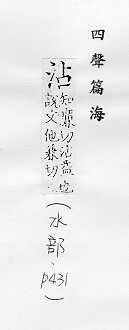 四聲篇海
沾
知廉切沾益也
說文他兼切
（水部、p431）